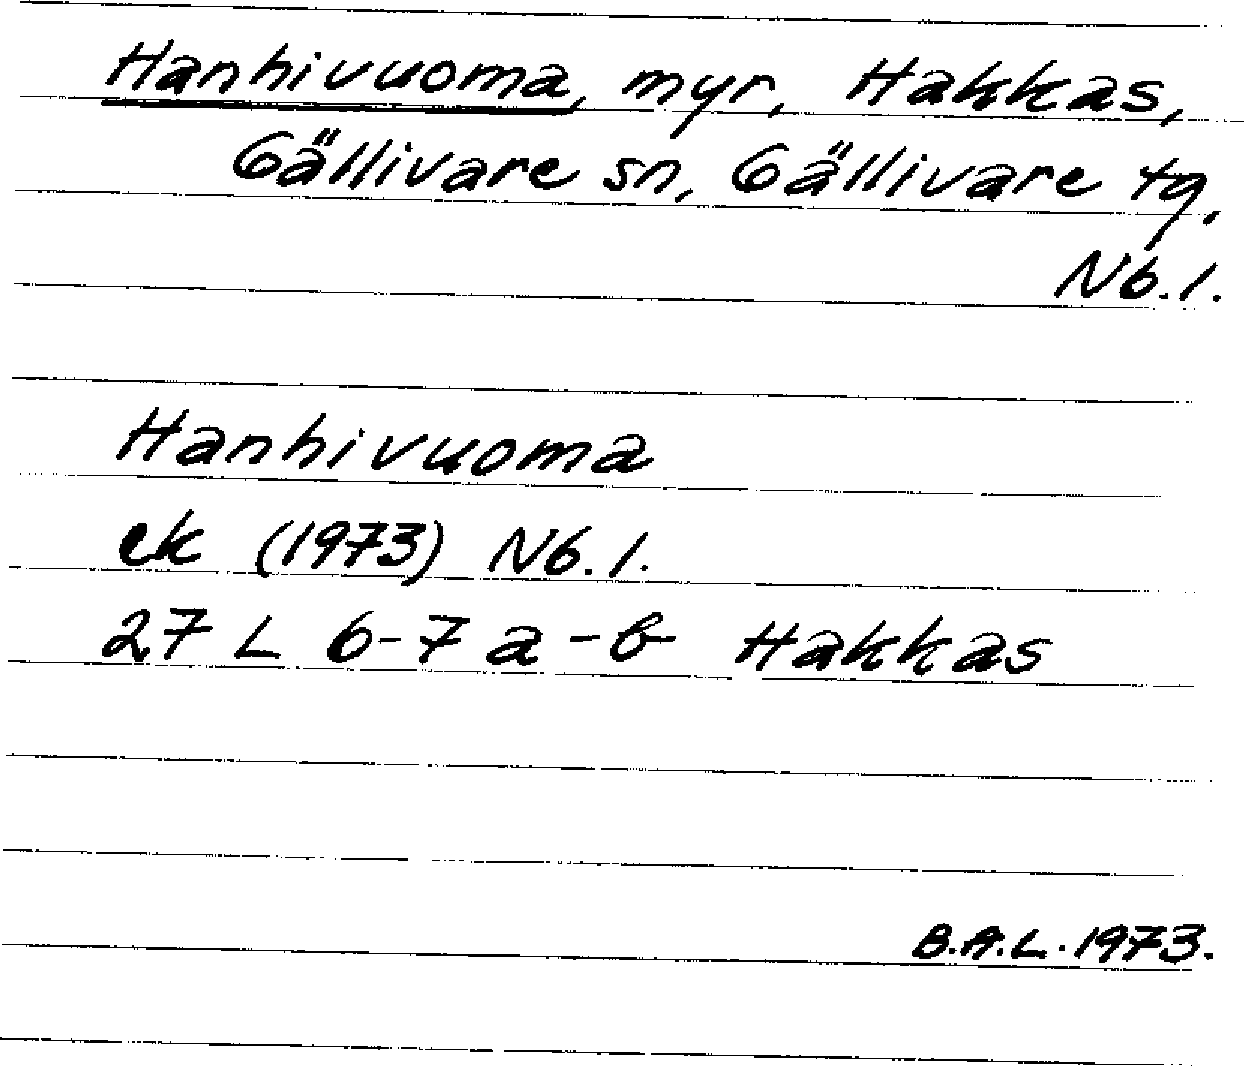 Hanhivuoma, myr, Hakkas,
Gällivare sn, Gällivare tg,
Nb.l.
Hanhivuoma
ek (1973) Nb.l.
27 L 6-7 a-b Hakkas
B.A.L. 1973.